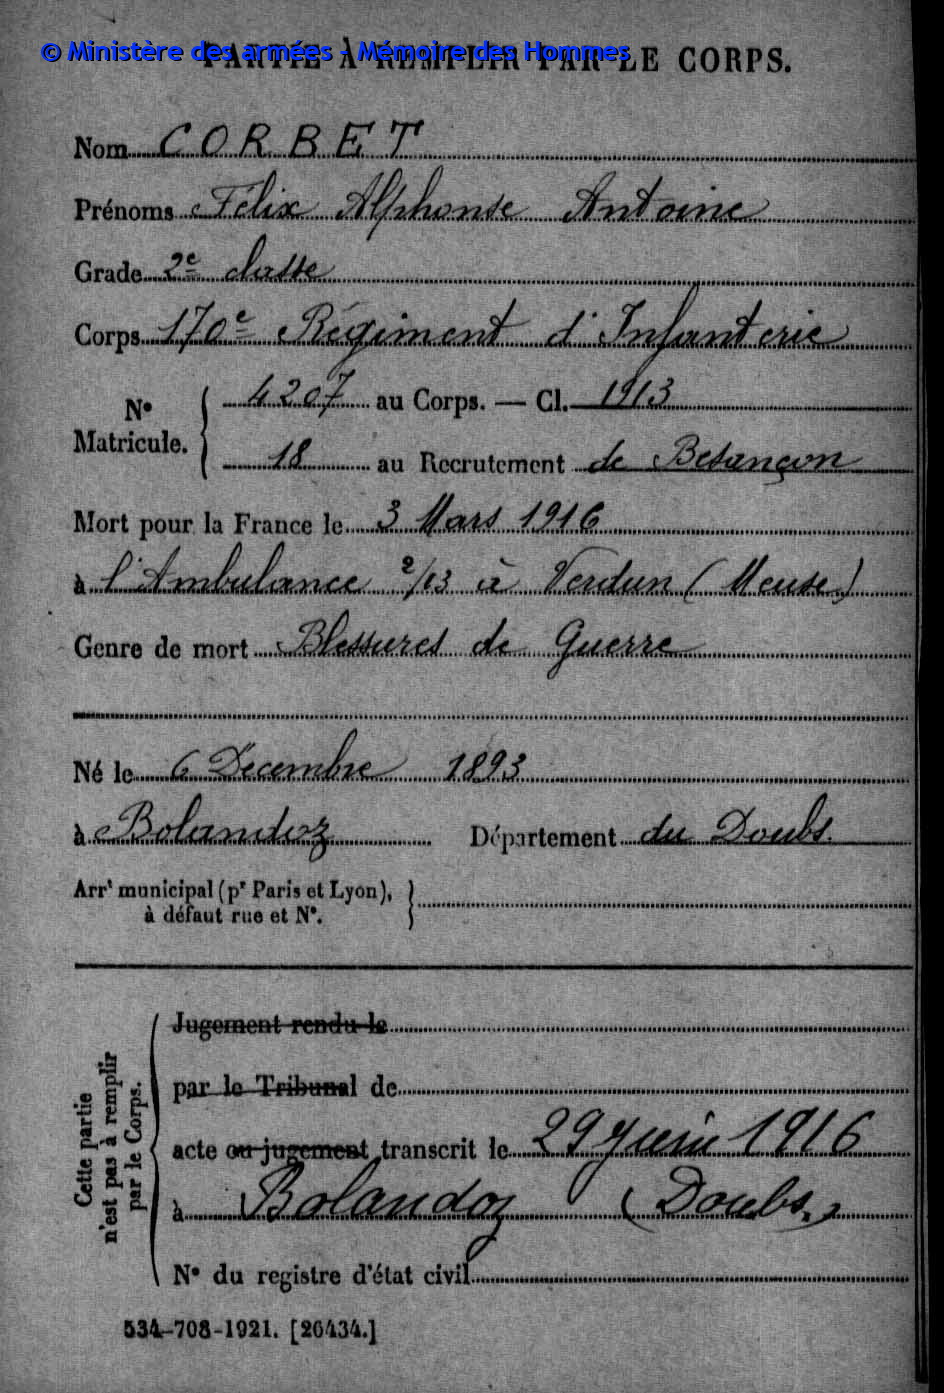 © Ministère des armées - Mémoire des Hommes
PARTIE À REMPLIR PAR LE CORPS.
Nom CORBET
Prénoms Félix Alphonse Antoine
Grade 2e classe
Corps 170e Régiment d'Infanterie
No Matricule. { 4207 au Corps. — Cl. 1913
18 au Recrutement de Besançon
Mort pour la France le 3 Mars 1916
à l'Ambulance 2/03 à Verdun (Meuse)
Genre de mort Blessures de Guerre
Né le 6 Décembre 1893
à Bolandoz Département du Doubs.
Arrt municipal (pr Paris et Lyon),
à défaut rue et No.
Cette partie
n'est pas à remplir
par le Corps.
Jugement rendu le
par le Tribunal de
acte ou jugement transcrit le 29 juin 1916
à Bolandoz (Doubs.)
No du registre d'état civil
534-708-1921. [26434.]